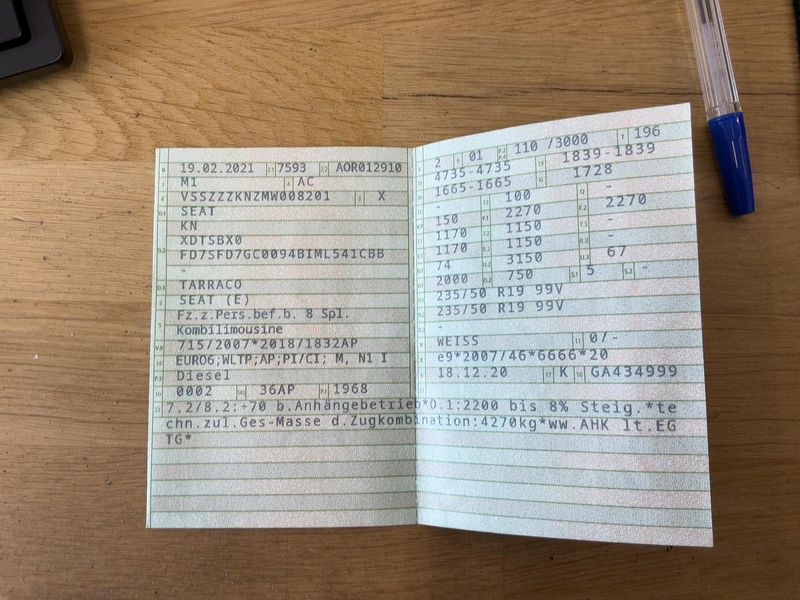 19.02.2021 7593 AOR012910
M1 AC
VSSZZZKNZMW008201 X
SEAT
KN
XDTSBX0
FD7SFD7GC0094BIML541CBB
-
TARRACO
SEAT (E)
Fz.z.Pers.bef.b. 8 Spl.
Kombilimousine
715/2007*2018/1832AP
EURO6;WLTP;AP;PI/CI; M, N1 I
Diesel
0002 36AP 1968
7.2/8.2:+70 b.Anhängebetrieb*O.1:2200 bis 8% Steig.*te
chn.zul.Ges-Masse d.Zugkombination:4270kg*ww.AHK lt.EG
TG*
2 01 110 /3000 196
4735-4735 1839-1839
1665-1665 1728
- 100 -
150 2270 2270
1170 1150 -
1170 1150 -
74 3150 67
2000 750 5 -
235/50 R19 99V
235/50 R19 99V
-
WEISS 0/-
e9*2007/46*6666*20
18.12.20 K GA434999